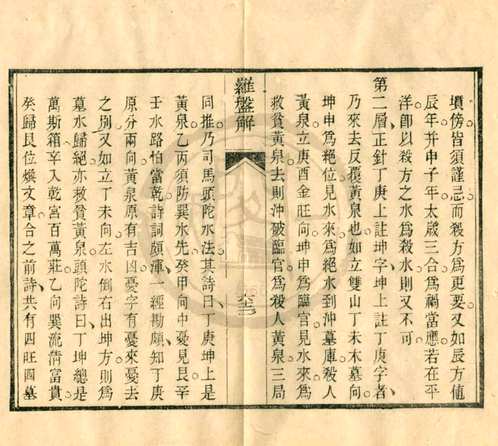 墳傍皆須謹忌而殺方爲更要又如辰方値
辰年并申子年太歲三合爲禍當應若在平
洋卽以殺方之水爲殺水則又不可
第二層正針丁庚上註坤字坤上註丁庚字者
乃來去反覆黃泉也如立雙山丁未木墓向
坤申爲絕位見水來爲絕水到沖墓庫殺人
黃泉立庚酉金旺向坤申爲臨官見水來爲
救貧黃泉去則沖破臨官爲殺人黃泉三局
羅盤解
同推乃司馬頭陀水法其詩曰丁庚坤上是
黃泉乙丙須防巽水先癸甲向中憂見艮辛
壬水路怕當乾詩詞頗渾一經勘頗知丁庚
原分兩向黃泉原有吉凶憂字有憂來憂去
之別又如立丁未向左水倒右出坤方則爲
墓水歸絕亦救貧黃泉頭陀詩曰丁坤總是
萬斯箱辛入乾宮百萬莊乙向巽流淸富貴
癸歸艮位煥文章合之前詩共有四旺四墓